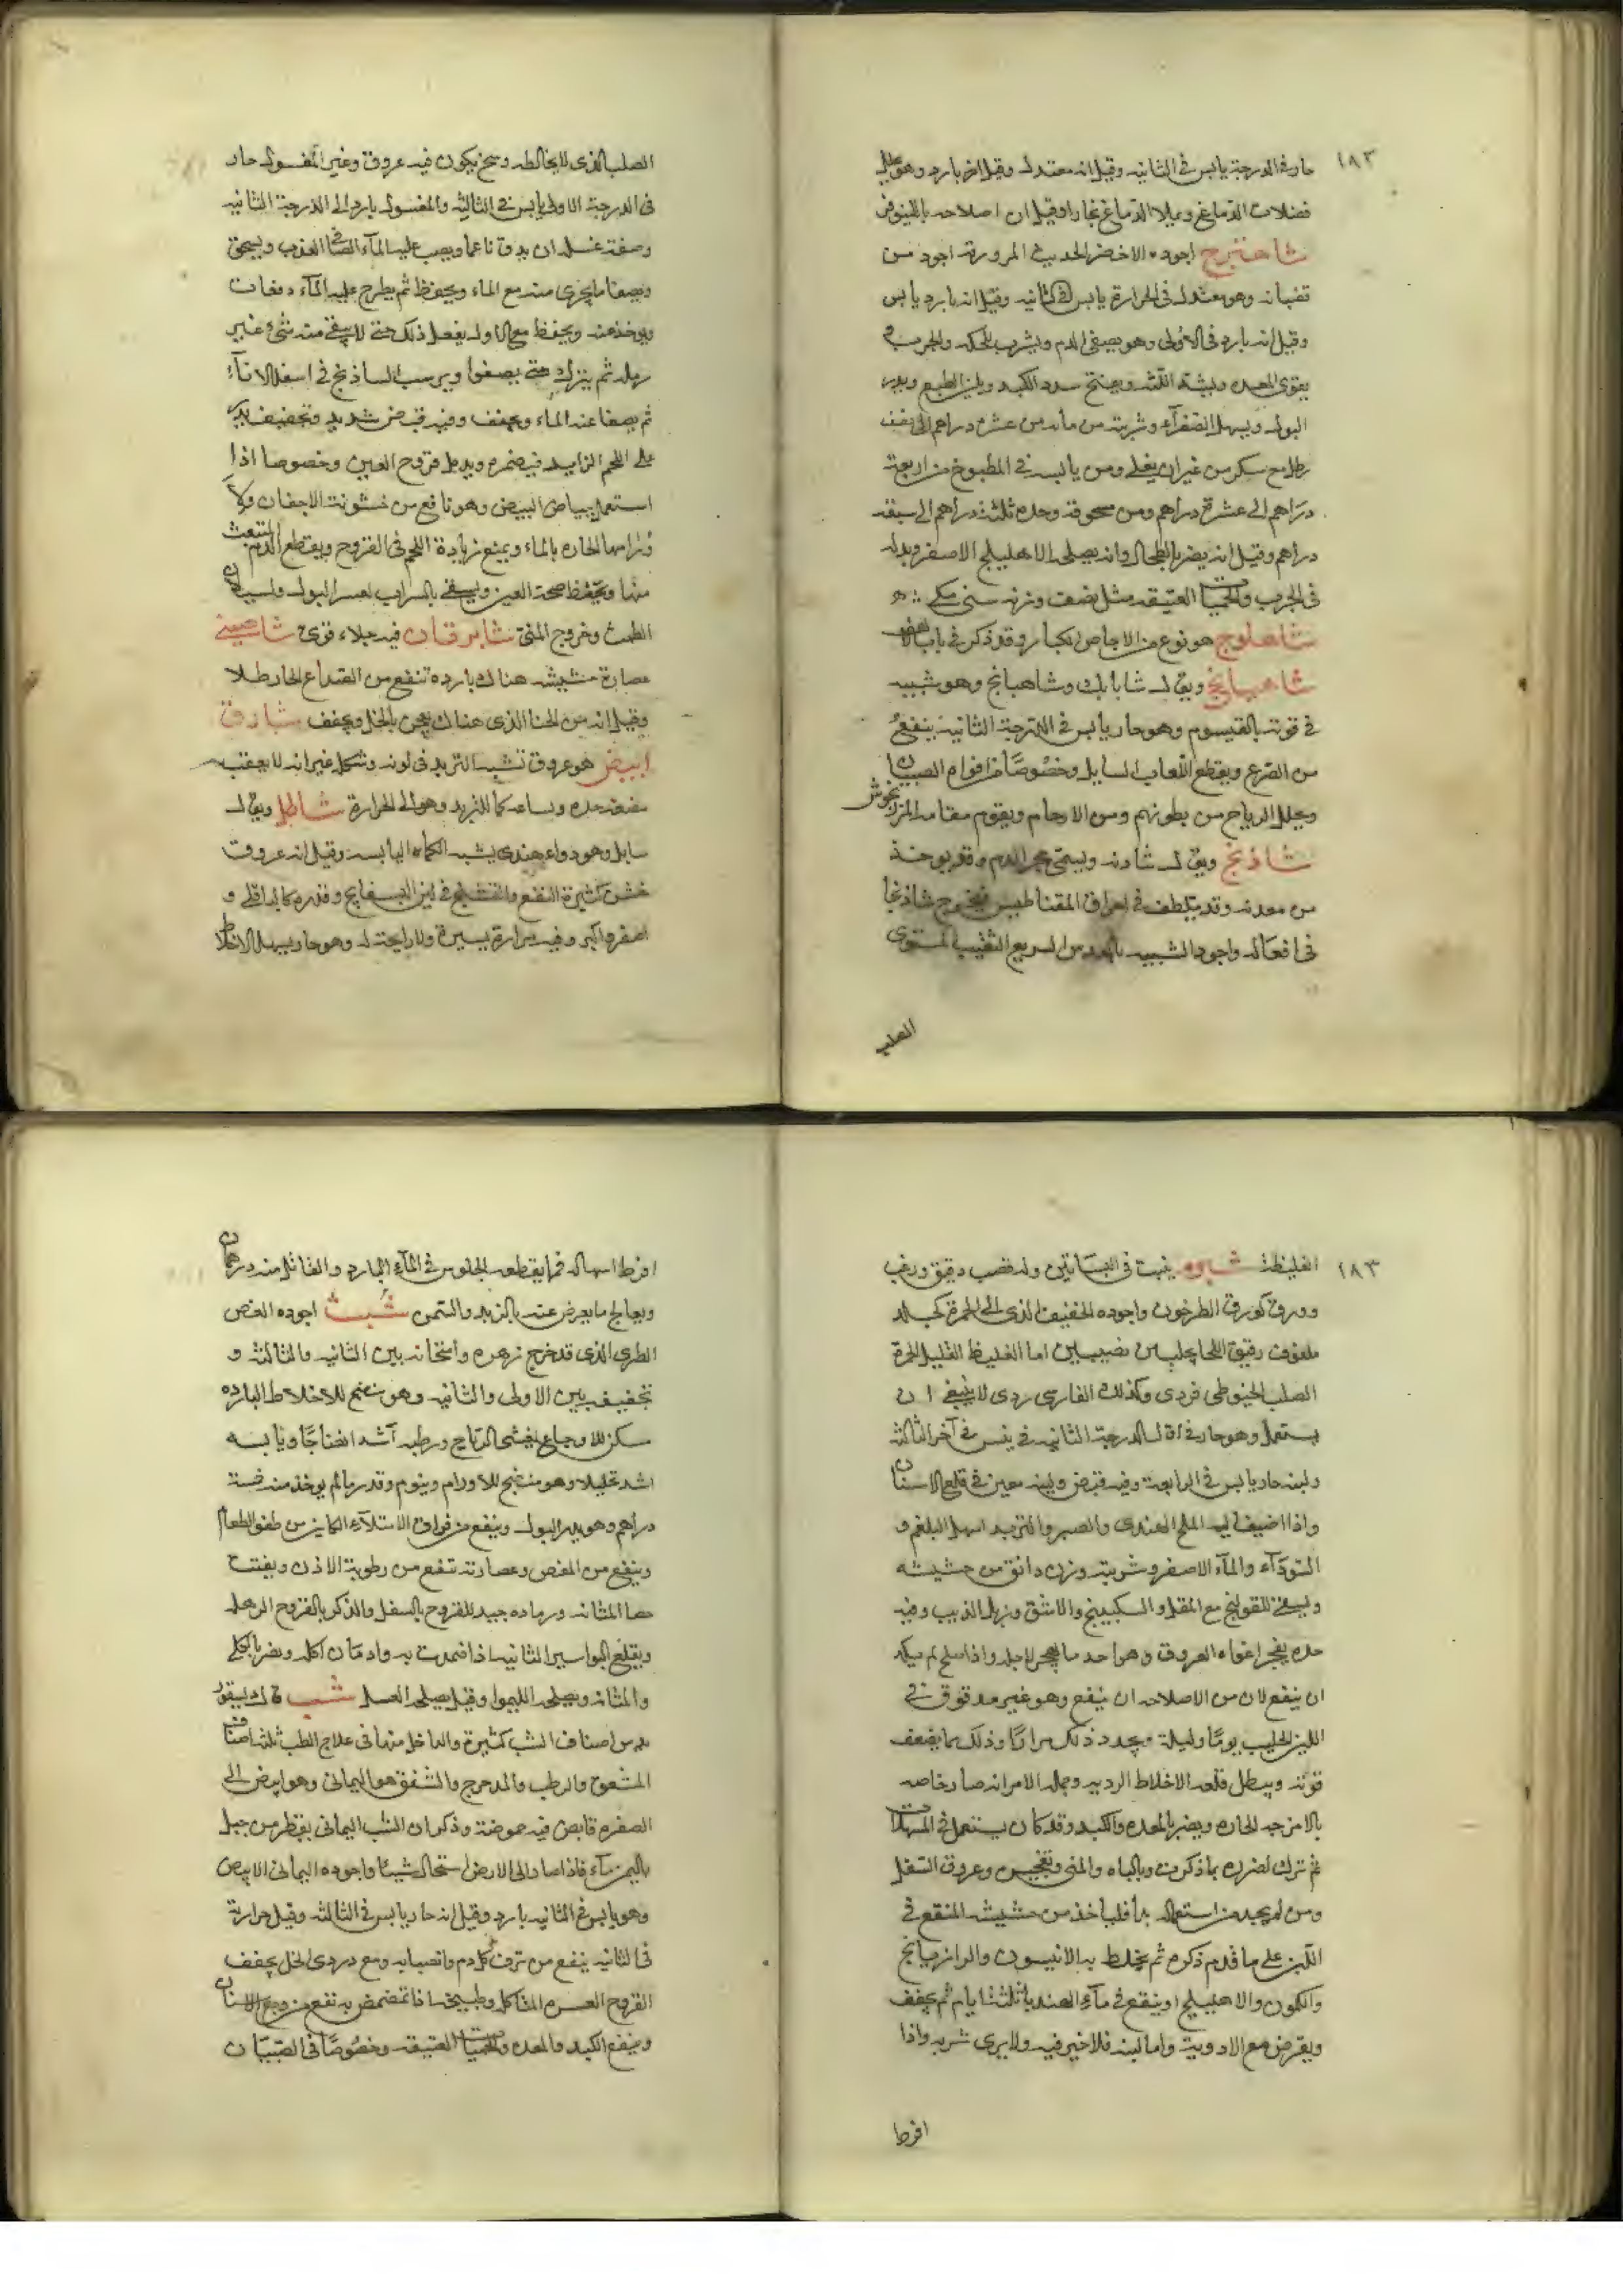 ١٨٣
حار فى الدرجة يابس فى الثانيه وقيل انه معتدل وقيل انه بارد وهو يحلل
فضلات الدماغ ويملا الدماغ بخارا وقيل ان اصلاحه بالنينوفر
شاهترج اجوده الاخضر الحديث المر ورقه اجود من
قضبانه وهو معتدل فى الحرارة يابس فى الثانيه وقيل انه بارد يابس
وقيل انه بارد فى الاولى وهو يصفى الدم ويشرب للحكه والجرب
يقوى المعده ويشد اللثه ويفتح سدد الكبد ويلين الطبع ويدر
البول ويسهل الصفرآء وشربته من مائه من عشره دراهم الى نصف
رطل مع سكر من غير ان يغلى ومن يابسه فى المطبوخ من اربعة
دراهم الى عشرة دراهم ومن مسحوقه وحده ثلثة دراهم الى سبعه
دراهم وقيل انه يضر بالطحال وانه يصلحه الاهليلج الاصفر وبدله
فى الجرب والحميات العتيقه مثل نصف وزنه سنى مكى
شاهلوج هو نوع من الاجاص الكبار وقد ذكر فى باب الالف
شاهبابج ويق لـ شابابك وشاهبانج وهو شبيه
فى قوته بالقيسوم وهو حار يابس فى الدرجة الثانية ينفع
من الصرع ويقطع اللعاب السايل وخصوصًا من افواه الصبيان
ويحلل الرياح من بطونهم ومن الارحام ويقوم مقامه المرزنجوش
شاذنج ويق لـ شادنه ويسمى حجر الدم وقد يوخذ
من معدنه وقد يتلطف فى احراق المغناطيس فيخرج شاذنجا
فى افعاله واجوده الشبيه بالعدس السريع التفتيت المستوى
الصلب
الصلب الذى لا يخالطه وسخ يكون فيه عروق وغير المغسول حار
فى الدرجة الاولى يابس فى الثالثه والمغسول بارد الى الدرجة الثانيه
وصفة غسله ان يدق ناعما ويصب عليه المآء الصافى العذب ويسحق
ويصفا ما يجرى منه مع الماء ويحفظ ثم يطرح عليه المآء دفعات
ويوخذ عنه ويحفظ مع الاول يفعل ذلك حتى لا يبقى منه شى غير
رمله ثم يترك حتى يصفوا ويرسب الساذنج فى اسفل الانآء
ثم يصفا عنه الماء ويجفف وفيه قبض شديد وتجفيف يذر
على اللحم الزايد فيضمره ويدمل قروح العين وخصوصا اذا
استعمل ببياض البيض وهو نافع من خشونة الاجفان ولا
ورامها الحاره بالماء ويمنع زيادة اللحم فى القروح ويقطع الدم المنبعث
منها ويحفظ صحة العين ويسقى بالشراب لعسر البول ولسيلان
الطمث وخروج المنى شابرقان فيه جلاء قوى شاصينى
عصارة حشيشه هناك بارده تنفع من الصداع الحار طلا
وقيل انه من الحنا الذى هناك يعجن بالخل ويجفف شاذق
ابيض هو عروق تشبه التربد فى لونه وشكله غير انه لا يعقب
مضغه حده ولساعه كما للتربد وهو الى الحرارة شاطل ويق لـ
سابل وهو دواء هندى يشبه الكماه اليابسه وقيل انه عروق
خشن كثيرة التقبع والتشنج فى لين البسفايج وقدره كالباقلى و
اصغر واكبر وفيه مرارة يسيرة ولا رايحة له وهو حار يسهل الاخلاط
١٨٣
الغليظة شبرم ينبت فى البساتين وله قصب دقيق وزغب
وورق كورق الطرخون واجوده الخفيف الذى الى الحمرة كجلد
ملفوف رقيق اللحا يجلب من نصيبين اما الغليظ القليل الحمرة
الصلب الخيوطى فردى وكذلك الفارسى ردى لا ينبغى ان
يستعمل وهو حار فى اول الدرجة الثانيه فى يبس فى آخر الثالثه
ولبنه حار يابس فى الرابعة وفيه قبض ولبنه معين فى قلع الاسنان
واذا اضيف اليه الملح الهندى والصبر والتربد اسهل البلغم و
السودآء والمآء الاصفر وشربته وزن دانق من حشيشه
ويسقى للقولنج مع المقل والسكبينج والاشق وزبل الذيب وفيه
حده يفجر افواه العروق وهو احد ما يهجر لاجله واذا صلح لم يكد
ان ينفع لان من الاصلاحه ان ينقع وهو غير مدقوق فى
اللبن الحليب يومًا وليلة ويجدد ذلك مرارًا وذلك مما يضعف
قوته ويبطل قلعه الاخلاط الرديه وجمله الامر انه ضار خاصه
بالامزجه الحاره ويضر بالمعده والكبد وقد كان يستعمل فى المسهلات
ثم ترك لضرره بما ذكرت وبالباه والمنى وتفجير وعروق السفل
ومن لم يجد من استعماله بدا فلياخذ من حشيشه المنقع فى
اللبن على ما قدم ذكره ثم يخلط به الانيسون والرازيانج
والكمون والاهليلج او ينقع فى مآء الهندبا ثلثة ايام ثم يجفف
ويقرض مع الادوية واما لبنه فلا خير فيه ولا يرى شربه واذا
افرط
افرط اسهاله فما يقطعه الجلوس فى المآء البارد والقاتل منه درهمان
ويعالج ما يعرض عنه بالزبد والسمن شبث اجوده الغض
الطرى الذى قد خرج زهره واسخانه بين الثانيه والثالثه و
تجفيفه بين الاولى والثانيه وهو منضج للاخلاط البارده
مسكن للاوجاع يفشى الرياح ورطبه آشد انضاجًا ويابسه
اشد تحليلا وهو منضج للاورام وينوم وقدر ما لم يوخذ منه خمسة
دراهم وهو يدر البول وينفع من فواق الامتلآء الكاين من طفو الطعام
وينفع من المغص وعصارته تنفع من رطوبة الاذن ويفتت
حصا المثانه ورماده جيد للقروح بالسفل والذكر بالقروح الرهله
ويقلع البواسير الثانيه اذا ضمدت به وادمان اكله يضر بالكلى
والمثانه ويصلحه الليموا وقيل يصلحه العسل شب
من اصناف الشب كثيرة والداخل منها فى علاج الطب ثلثه اصناف
المشقق والرطب والمدحرج والشقق هو اليمانى وهو ابيض الى
الصفره قابض فيه حموضة وذكر ان الشب اليمانى يقطر من جبل
باليمن مآء فاذا صار الى الارض استحال شيئا واجوده اليمانى الابيض
وهو يابس فى الثانيه بارد وقيل انه حار يابس فى الثالثه وقيل حرارته
فى الثانيه ينفع من نزف كل دم وانصبابه ومع دردى الخل يجفف
القروح العسره المتاكله وطبيخه اذا تمضمض به نفع من وجع الاسنان
وينفع الكبد والمعده والحميات العتيقه وخصوصًا فى الصبيان